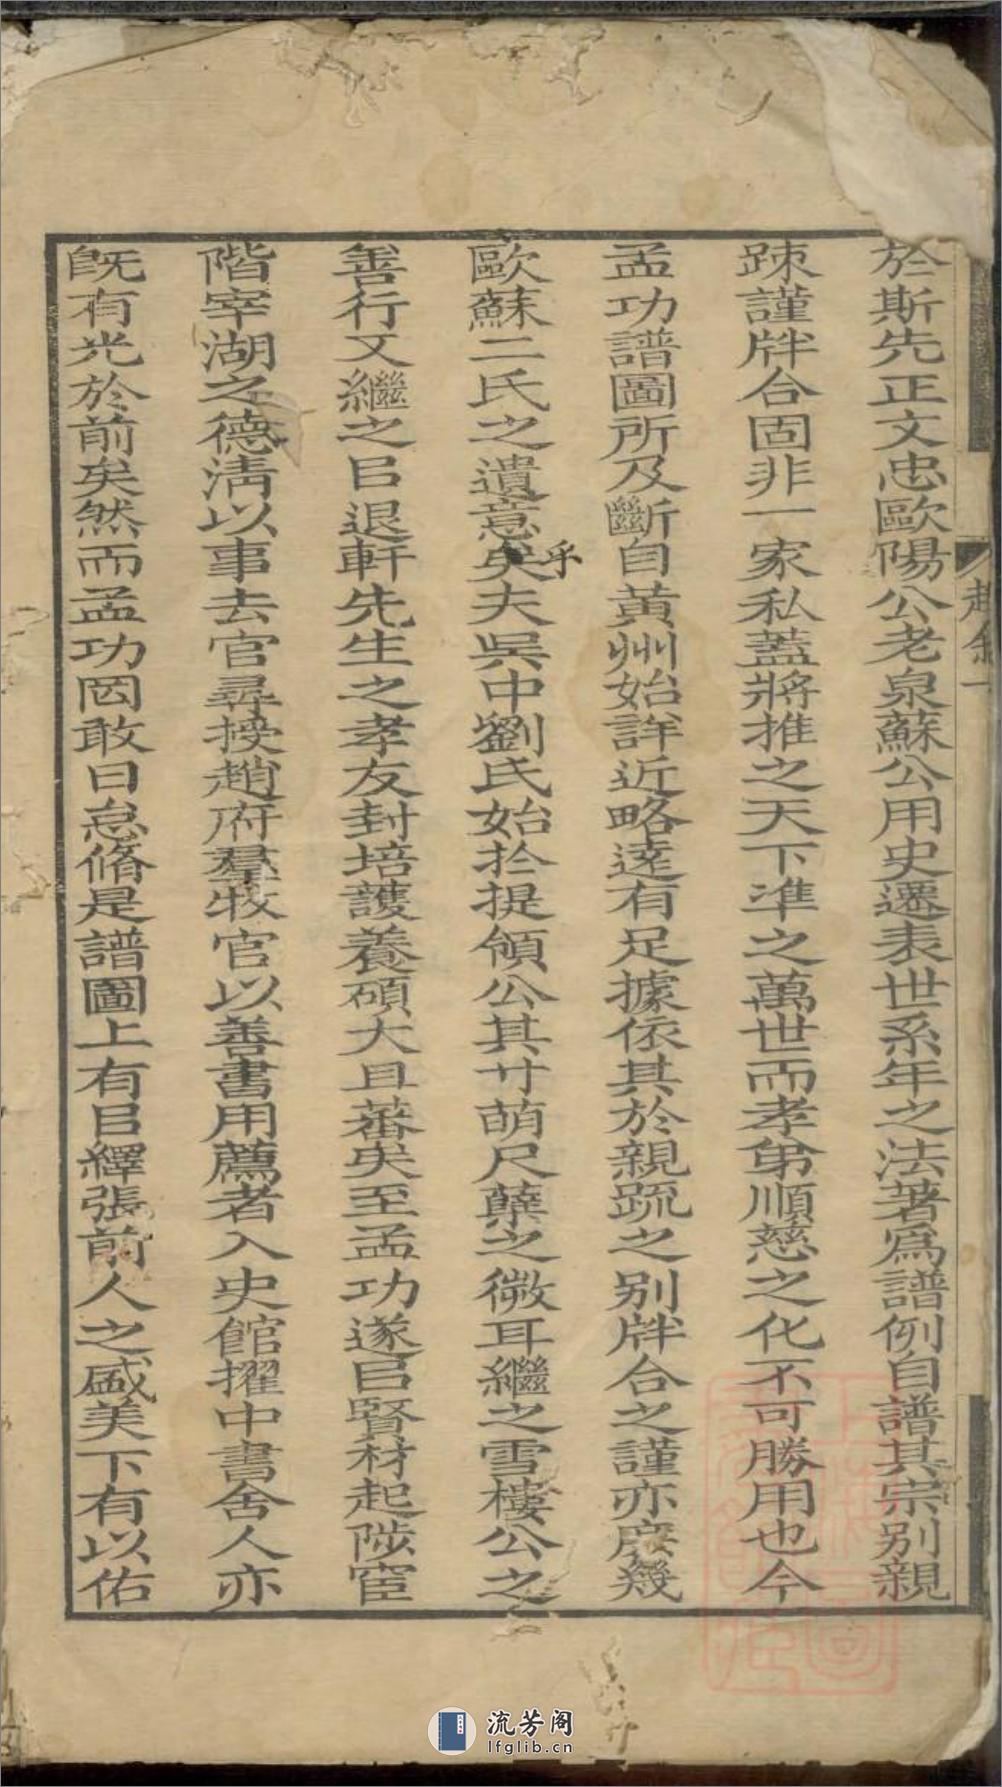 於斯先正文忠歐陽公老泉蘇公用史遷表世系年之法著爲譜例自譜其宗别親
踈謹牉合固非一家私蓋將推之天下凖之萬世而孝弟順慈之化不可勝用也今
孟功譜圖所及斷自黄州始詳近略逺有足據依其於親疏之别牉合之謹亦庶幾
歐蘇二氏之遺意矣夫吳中劉氏始於提領公其寸萌尺蘖之微耳繼之雪樓公之
乎
善行又繼之㠯退軒先生之孝友封培護養碩大且蕃矣至孟功遂㠯賢材起陟宦
階宰湖之德清以事去官尋授趙府羣牧官以善書用薦者入史館擢中書舍人亦
旣有光於前矣然而孟功罔敢日怠脩是譜圖上有㠯繹張前人之盛美下有以佑
趙叙一
流芳阁
lfglib.cn